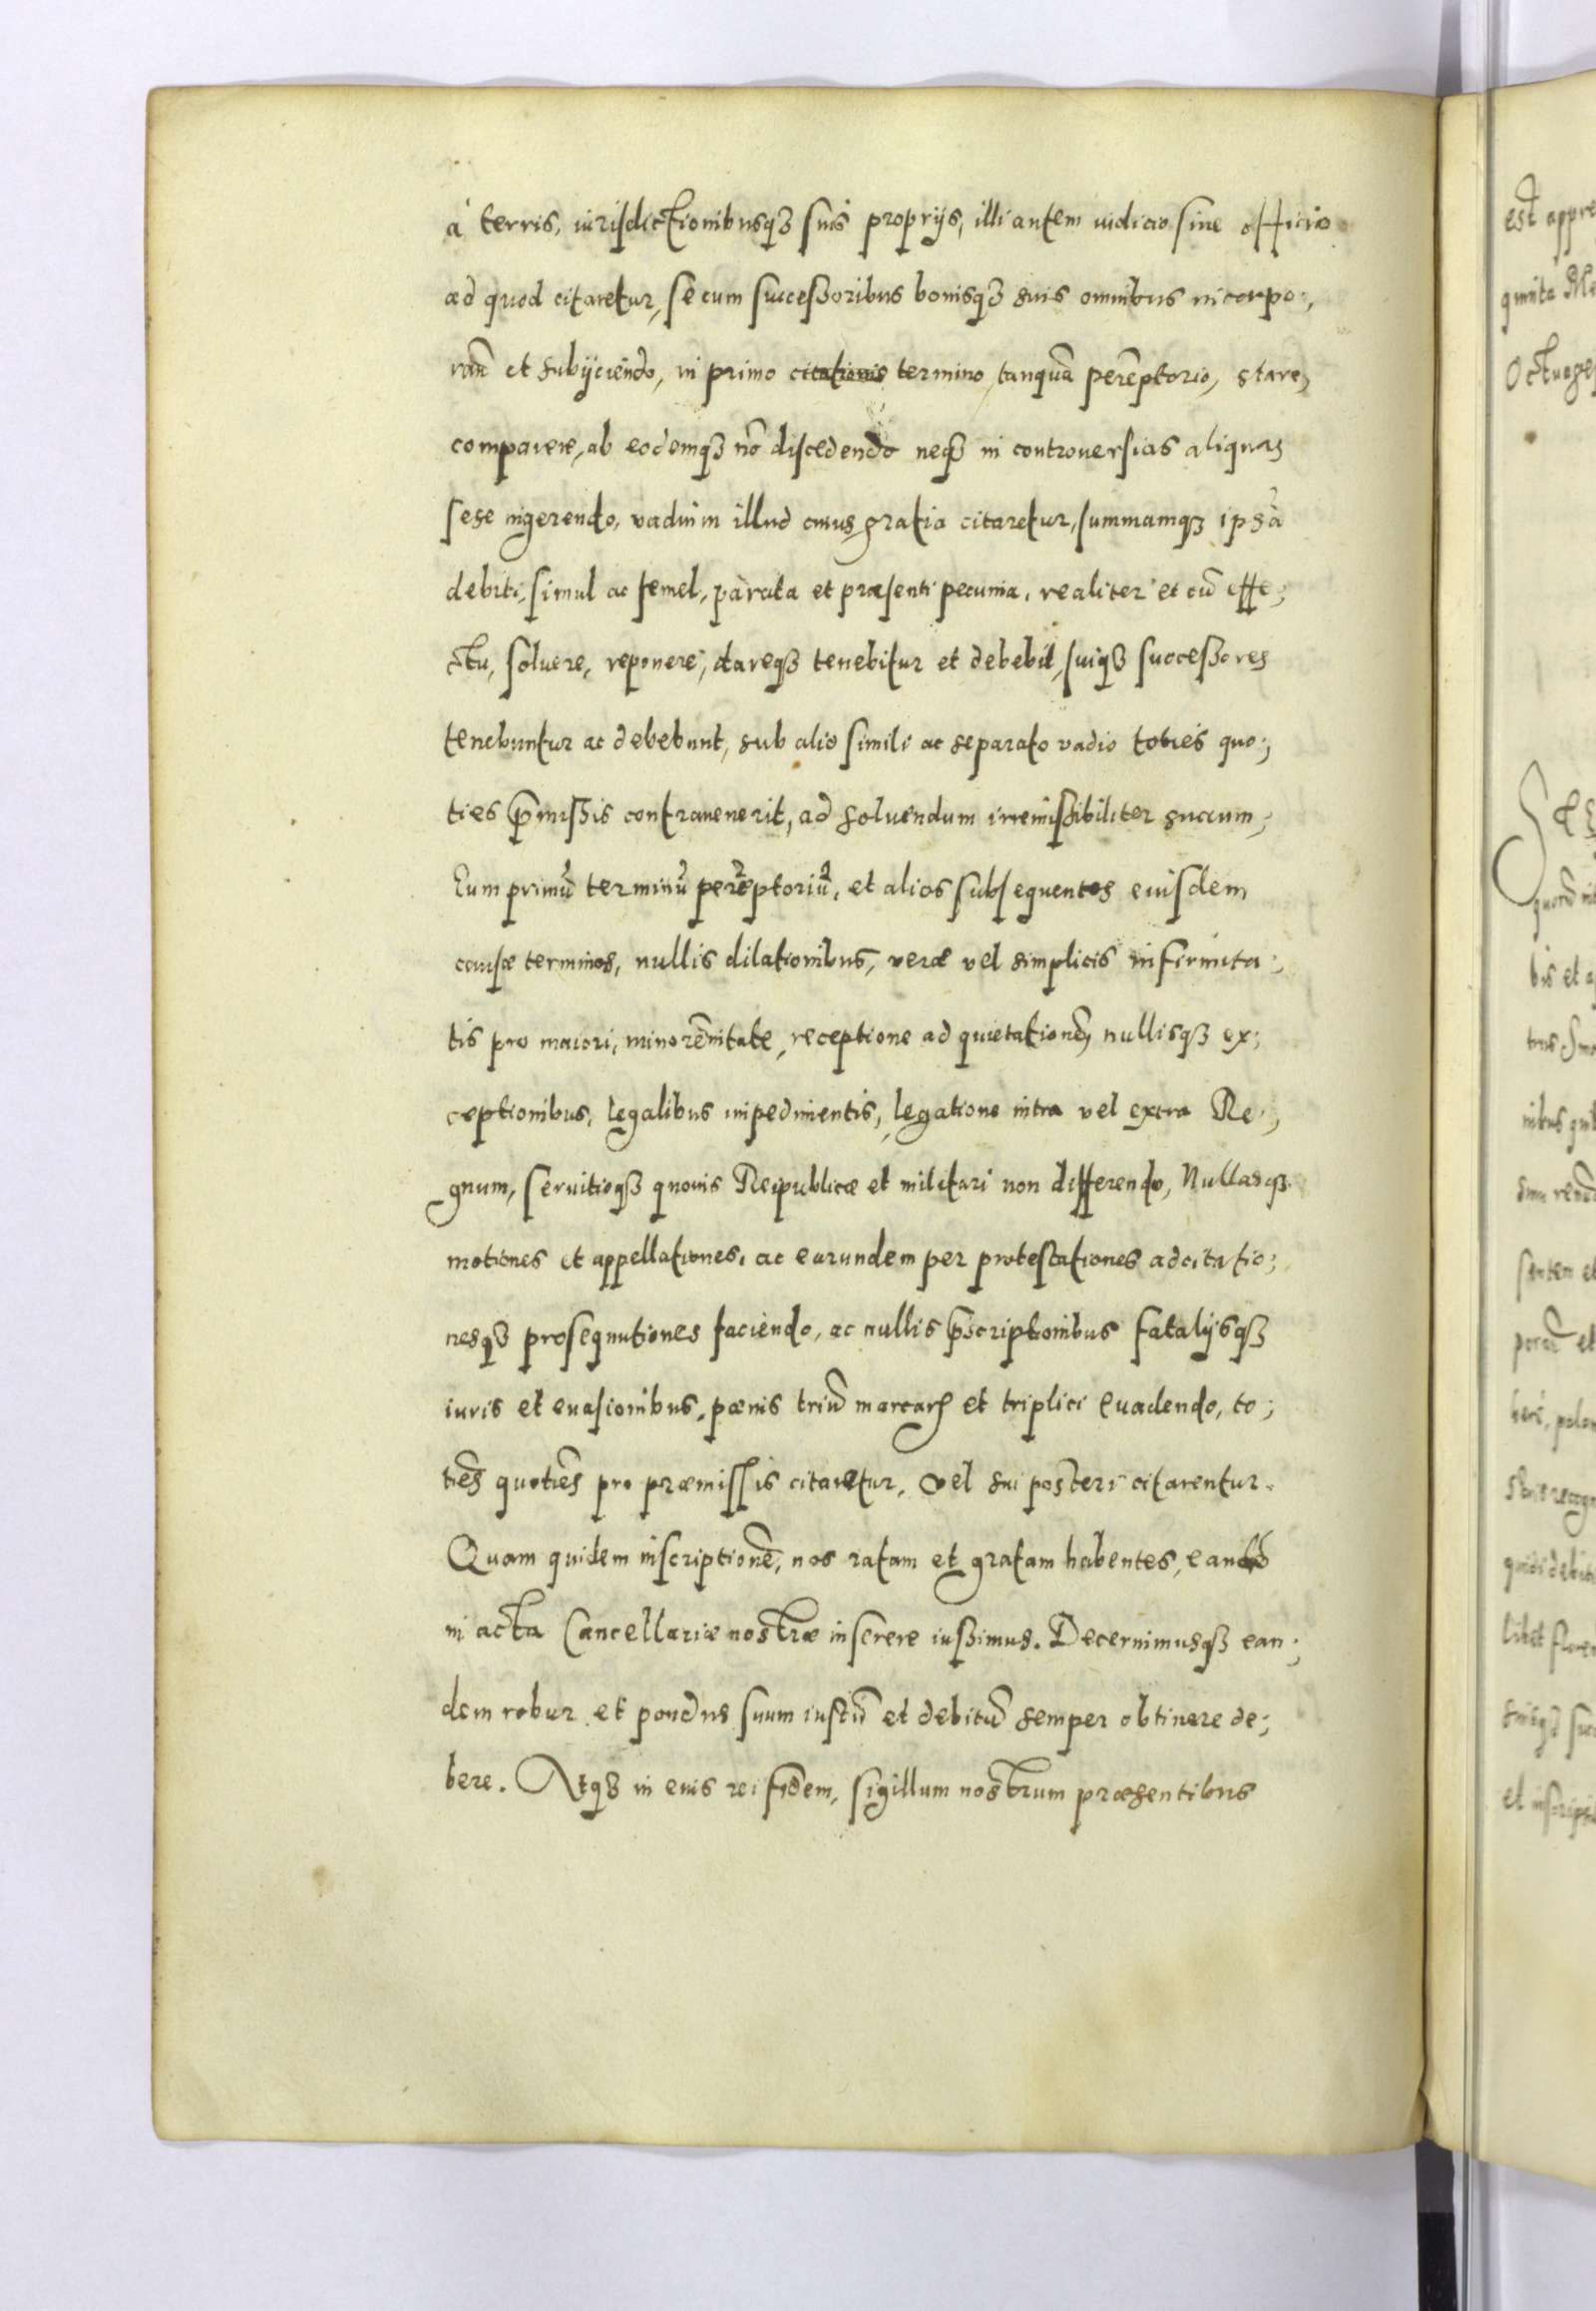 à terris, iurisdictionibusqȝ suis proprijs, illi autem iudicio siue officio
ad quod citaretur, se cum successoribus bonisqȝ suis omnibus incorpo;
rañ et subijciendo, in primo citationis termino, tanquã perẽptorio, stare,
comparere, ab eodemqȝ nõ discedendo neqȝ in controuersias aliquas
sese ingerendo, vadium illud cuius gratia citaretur, summamqȝ ipsã
debiti, simul ac semel, parata et præsenti pecunia, realiter et cũ effe;
ctu, soluere, reponere, dareqȝ tenebitur et debebit, suiqȝ successores
tenebuntur ac debebunt, sub alio simili ac separato vadio toties quo;
ties p̃missis contrauenerit, ad soluendum irremissibiliter succum;
Eum primũ terminũ perẽptoriũ, et alios subsequentes eiusdem
causæ terminos, nullis dilationibus, veræ vel simplicis infirmita;
tis pro maiori, minorẽnitate, receptione ad quietationẽ, nullisqȝ ex;
ceptionibus, legalibus impedimentis, legatione intra vel extra Re;
gnum, seruitioqȝ quouis Reipublicæ et militari non differendo, Nullasqȝ
motiones et appellationes, ac earundem per protestationes adcitatio;
nesqȝ prosequutiones faciendo, ac nullis p̃scriptionibus fatalijsqȝ
iuris et euasionibus, pœnis triũ marcarꝝ et triplici euadendo, to;
tiẽs quotiẽs pro præmissis citaretur, vel sui posteri citarentur.
Quam quidem inscriptionẽ, nos ratam et gratam habentes, eandẽ
in acta Cancellariæ nostræ inserere iussimus. Decernimusqȝ ean;
dem robur et pondus suum iustũ et debitũ semper obtinere de;
bere. Atqȝ in eius rei fidem, sigillum nostrum præsentibus